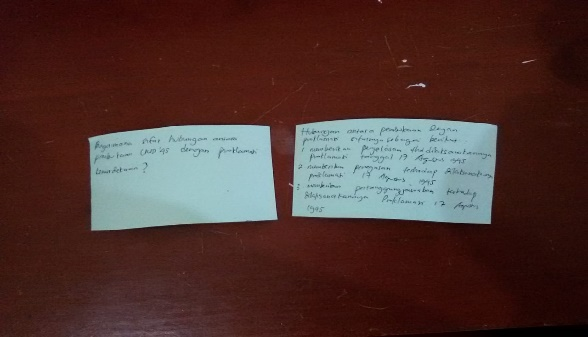 Bagaimana sifat hubungan antara
pembukaan UUD'45 dengan proklamasi
kemerdekaan?
Hubungan antara pembukaan dengan
proklamasi sifatnya sebagai berikut
1 memberikan penjelasan thd dilaksanakannya
proklamasi tanggal 17 Agustus 1945
2 memberikan penegasan terhadap dilaksanakannya
proklamasi 17 Agustus 1945
3 memberikan pertanggungjawaban terhadap
dilaksanakannya Proklamasi 17 Agustus
1945